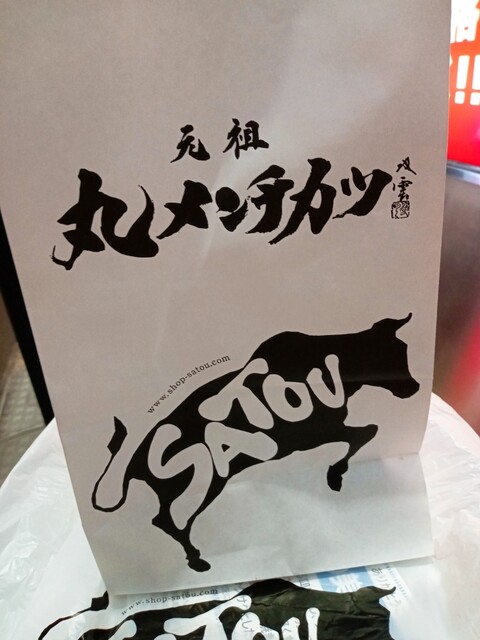 元祖
丸メンチカツ
www.shop-satou.com
SATOU
www.shop-satou.com
SATOU